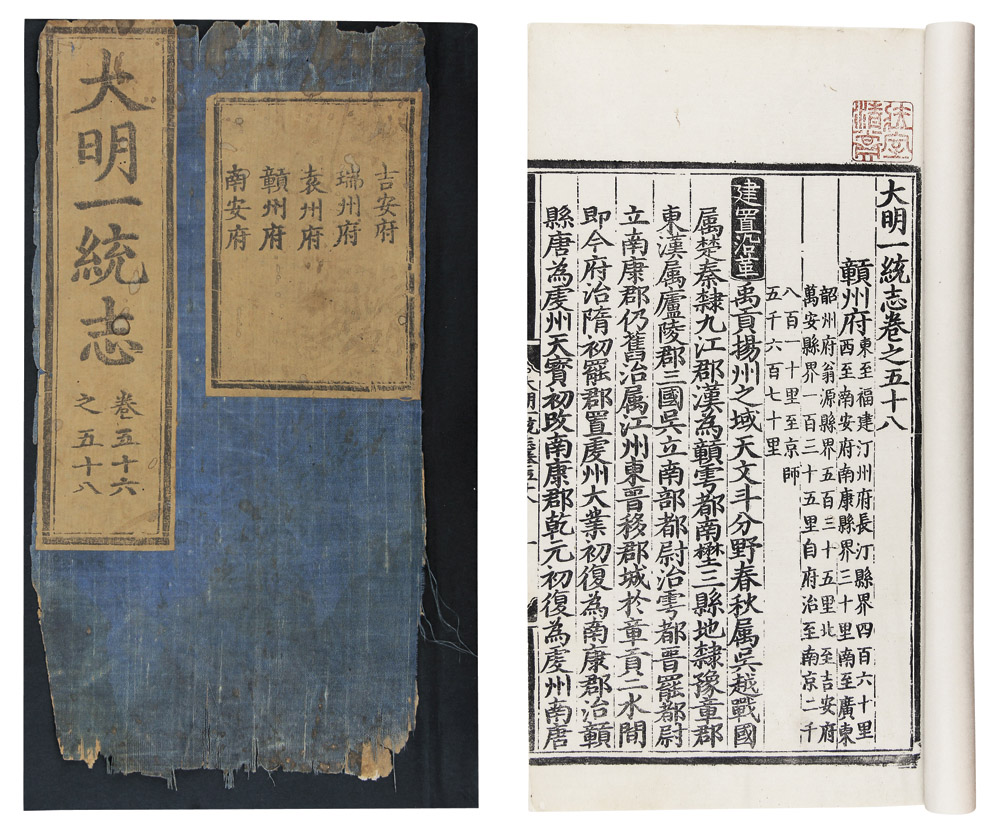 大明一統志
卷五十六
之五十八
吉安府
瑞州府
袁州府
贛州府
南安府
大明一統志卷之五十八
贛州府
東至福建汀州府長汀縣界四百六十里
西至南安府南康縣界三十里南至廣東
韶州府翁源縣界五百三十五里北至吉安府
萬安縣界一百三十五里自府治至南京二千
八百一十里至京師
五千六百七十里
建置沿革禹貢揚州之域天文斗分野春秋属吳越戰國
属楚秦隸九江郡漢為贛雩都南壄三縣地隸豫章郡
東漢属廬陵郡三國吳立南部都尉治雩都晉罷都尉
立南康郡仍舊治属江州東晉移郡城於章貢二水間
即今府治隋初罷郡置虔州大業初復為南康郡治贛
縣唐為虔州天寶初改南康郡乾元初復為虔州南唐